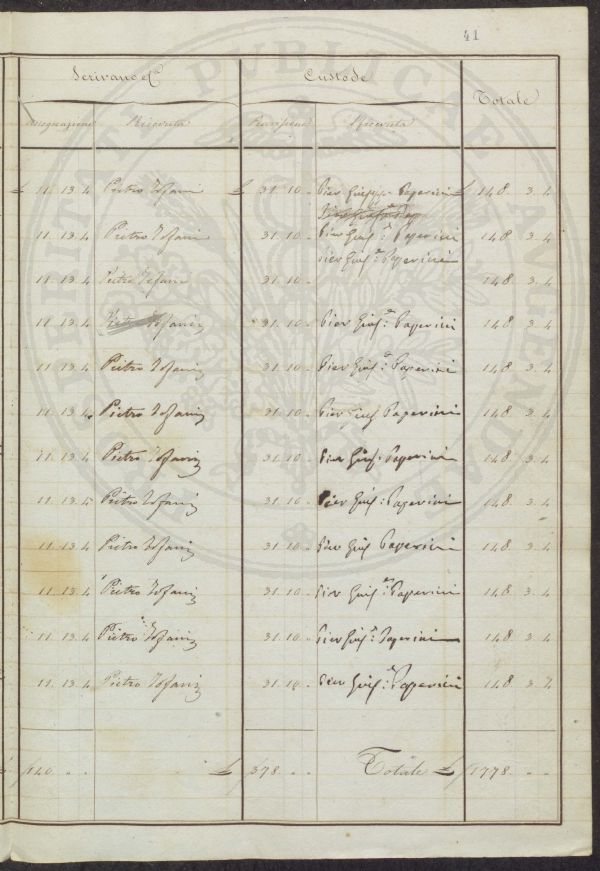 41
Custode
Totale
Assegnazione Ricevuta Provisione Ricevuta
£ 11. 13. 4 Pietro Tofani £ 31. 10 - Pier Giuseppe Paperini £ 148. 3. 4
11. 13. 4 Pietro Tofani 31. 10 - Pier Gius.e Paperini 148. 3. 4
Pier Gius.e Paperini
11. 13. 4 Pietro Tofani 31. 10 - 148. 3. 4
11. 13. 4 Pietro Tofani 31. 10 - Pier Gius.e Paperini 148. 3. 4
11. 13. 4 Pietro Tofani 31. 10 - Pier Gius.e Paperini 148. 3. 4
11. 13. 4 Pietro Tofani 31. 10 - Pier Gius Paperini 148. 3. 4
11. 13. 4 Pietro Tofani 31. 10 - Pier Gius: Paperini 148. 3. 4
11. 13. 4 Pietro Tofani 31. 10 - Pier Gius: Paperini 148. 3. 4
11. 13. 4 Pietro Tofani 31. 10 - Pier Gius Paperini 148. 3. 4
11. 13. 4 Pietro Tofani 31. 10 - Pier Gius.e Paperini 148. 3. 4
11. 13. 4 Pietro Tofani 31. 10 - Pier Gius.e Paperini 148. 3. 4
11. 13. 4 Pietro Tofani 31. 10 - Pier Gius.e Paperini 148. 3. 4
£ 140. . . £ 378 . . Totale £ 1778. . .